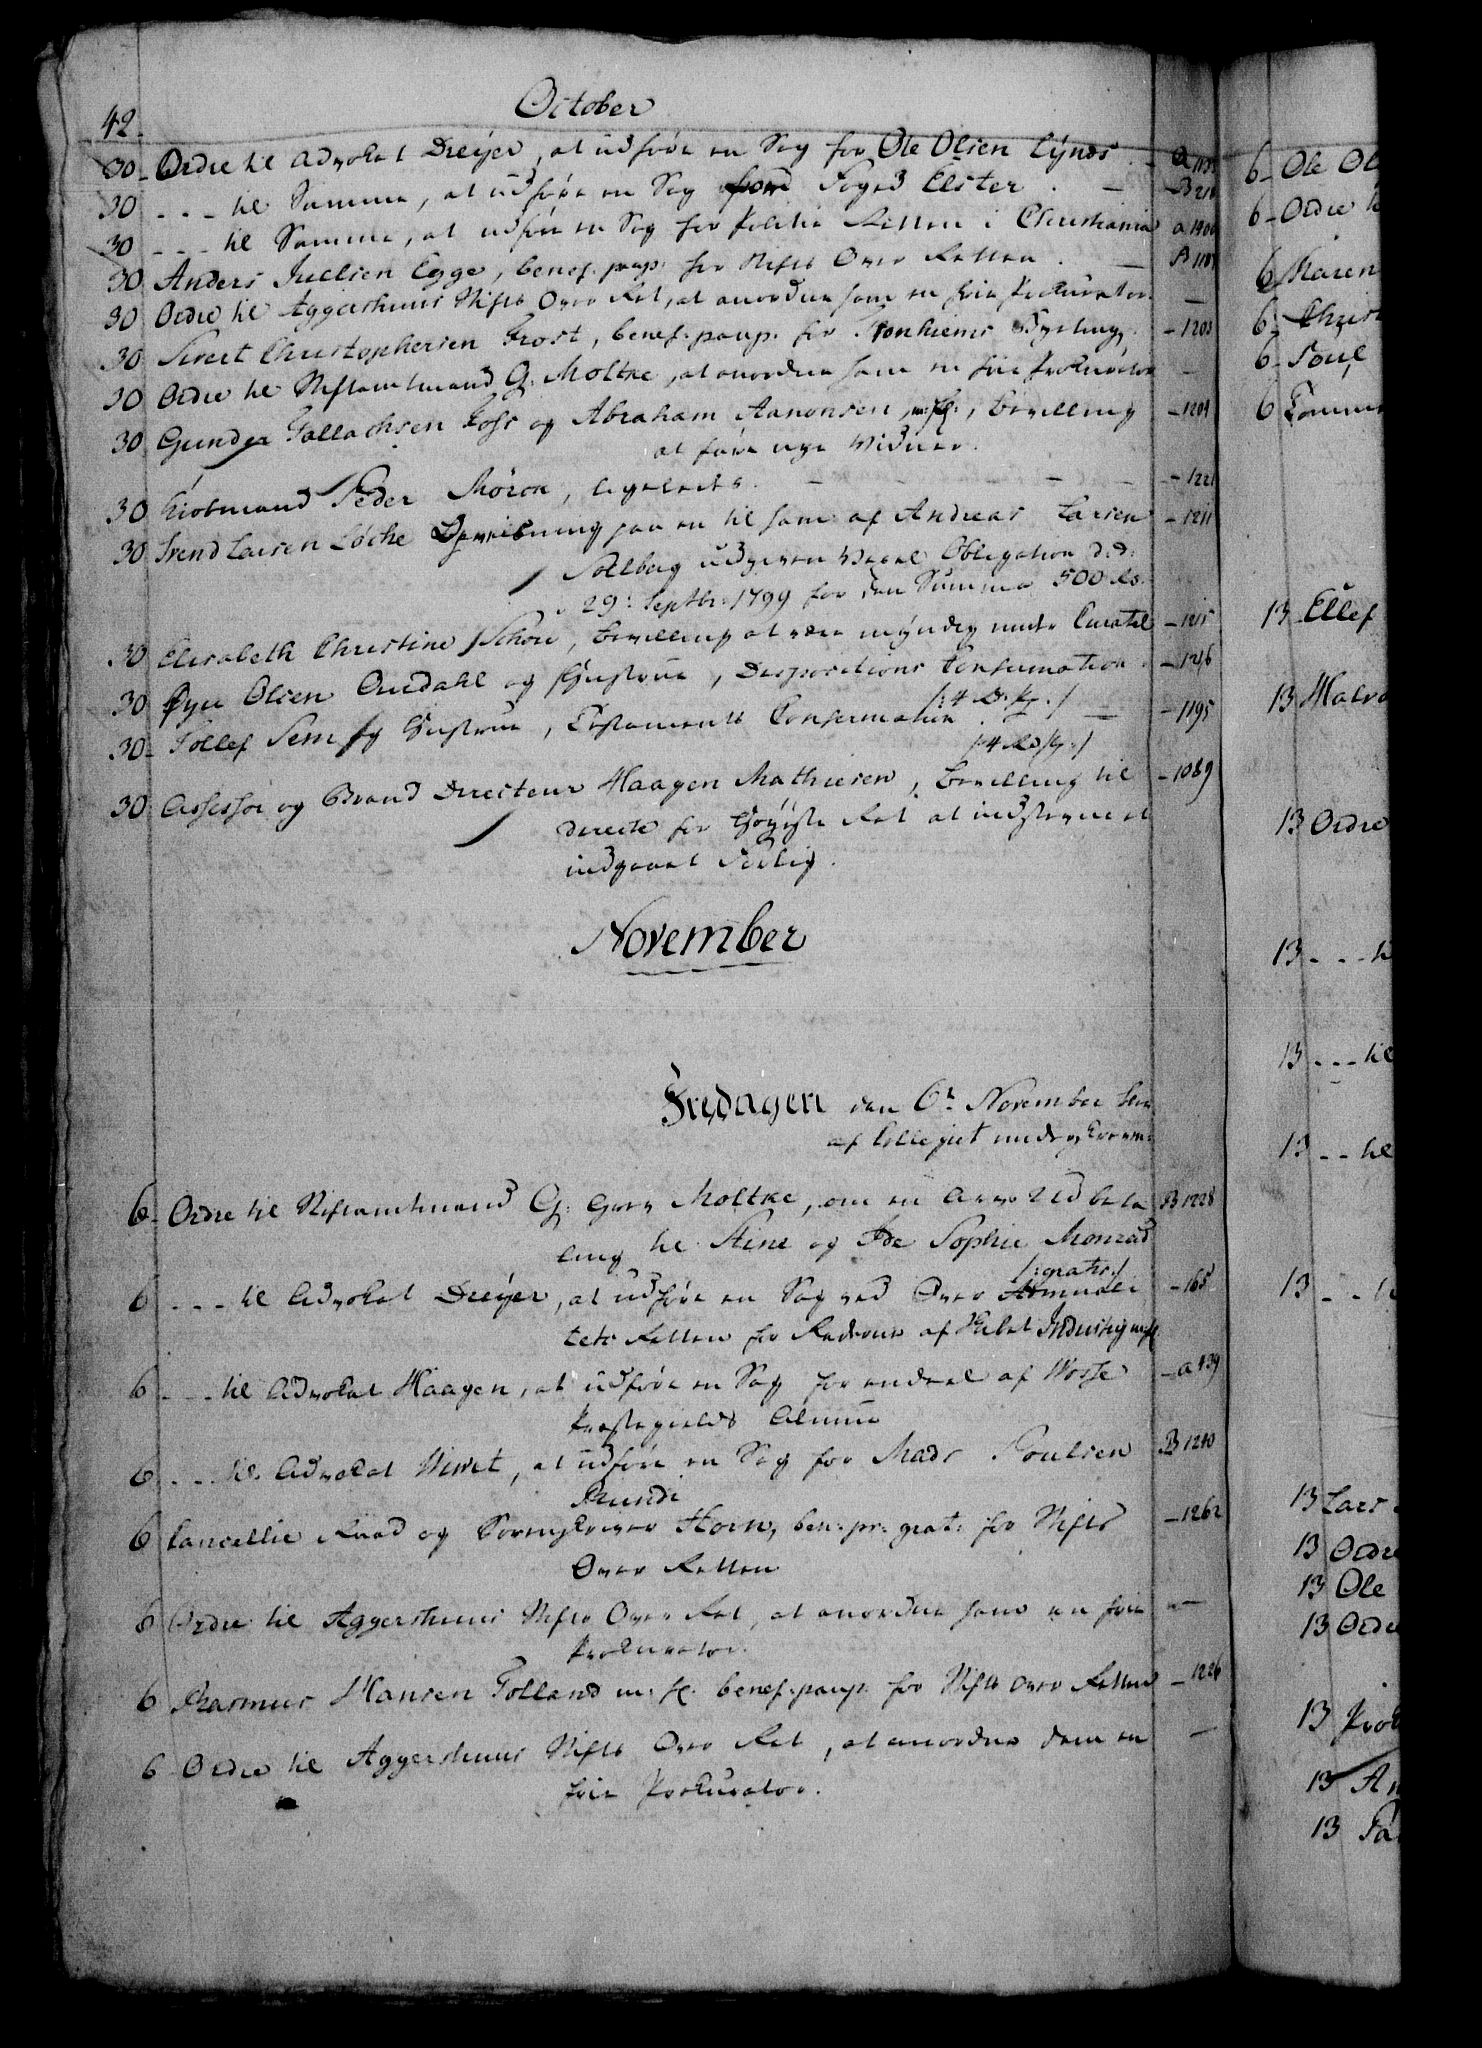 42.
October
30 - Ordre til Advokat Dreÿer, at udføre en Sag for Ole Olsen Lÿnds - a
30 - - - til Samme, at udføre en Sag Foged Elster . - B
30 - - - til Samme, at udføre en Sag for Politie Retten i Christiania a
30 Anders Juelsen Egge, benef: paup: for Stifts Over Retten . - B
30 Ordre til Aggershuus Stifts Over Ret, at anordne ham en frie Prokurator -
30 Sivert Christophersen Frost, benef: paup: for Tronhiems Bye Ting - 1203
30 Ordre til Stiftamtmand G. Moltke, at anordne ham en frie Prokurator -
30 Gunder Tallachsen Foss og Abraham Aanonsen, Bevilling - 1204
at føre nye Vidner.
30 Kiøbmand Peder Mörck, ligeledes. - - - 1221
30 Svend Larsen Løcke paa en til ham af Andreas Larsen - 1211
Solberg udgiven Obligation d:d:
29: Septbr: 1799 for den Summa 500 Rd.
30 Elisabeth Christine Schou, Bevilling at være mÿndig under Curatel - 1215
30 Olsen Ouedahl og Hustrue, Dispositions Confirmation . - 1246
/:4 Rd. :/
30 - Tollef Sem og Hustrue, Testaments Confirmation . - 1195
/:4 Rd :/
30 Assessor og Brand Directeur Haagen Mathiesen, Bevilling til - 1089
directe for Høÿeste Ret at indstevne et
indgaaet Forlig.
November
Fredagen den 6te November blev
af Collegiet underskreven:
6 - Ordre til Stiftamtmand G: Grev Moltke, om en Arve Udbeta B 1228
ling til Stine og Ide Sophie Monrad
/:gratis:/
6 - - - til Advokat Dreÿer, at udføre en Sag ved Over Admirali - 165
tets Retten for Rederne af Skibet
6 - - - til Advokat Haagen, at udføre en Sag for endeel af Wosse - a 439
Præstegields Almue
6 - - - til Advokat Wivet, at udføre en Sag for Mads Poulsen B 1240
Runde
6 Cancellie Raad og Sorenskriver Horn, ben: pr: grat: for Stifts - 1262
Over Retten
6 Ordre til Aggershuus Stifts Over Ret, at anordne ham en frie -
Prokurator.
6 Rasmus Hansen Tolland m: fl: benef: paup: for Stifts Over Retten - 1226
6 Ordre til Aggershuus Stifts Over Ret, at anordne dem en -
frie Prokurator.
6 - Ole Ol
6 - Ordre
6 Maren
6 - Christ
6 - Poul
6
13 Ellef
13 Halvo
13 Ordre
13 - - -
13 - - - til
13 - - til
13 - -
13 Lars
13 Ordre
13 Ole
13 Ordre
13 Prok
13 An
13